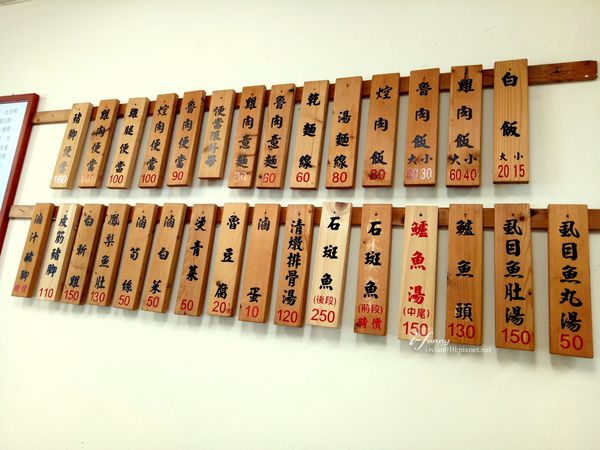 白飯 大小 20 15
雞肉飯 大小 60 40
魯肉飯 大小 30
焢肉飯 80
湯麵線 80
乾麵線 60
魯肉意麵 60
雞肉意麵
便當限外帶
魯肉便當 90
焢肉便當 100
雞腿便當 100
雞肉便當
豬腳便當 160
虱目魚丸湯 50
虱目魚肚湯 150
鱸魚頭 130
鱸魚湯 (中尾) 150
石斑魚 (前段) 時價
石斑魚 (後段) 250
清燉排骨湯 120
滷蛋 10
魯豆腐 20
燙青菜 50
滷白菜 50
滷筍絲 50
鳳梨魚肚 130
白斬雞 150
皮筋豬腳 110
滷汁豬腳 時價
Funny
vivian010.pixnet.net